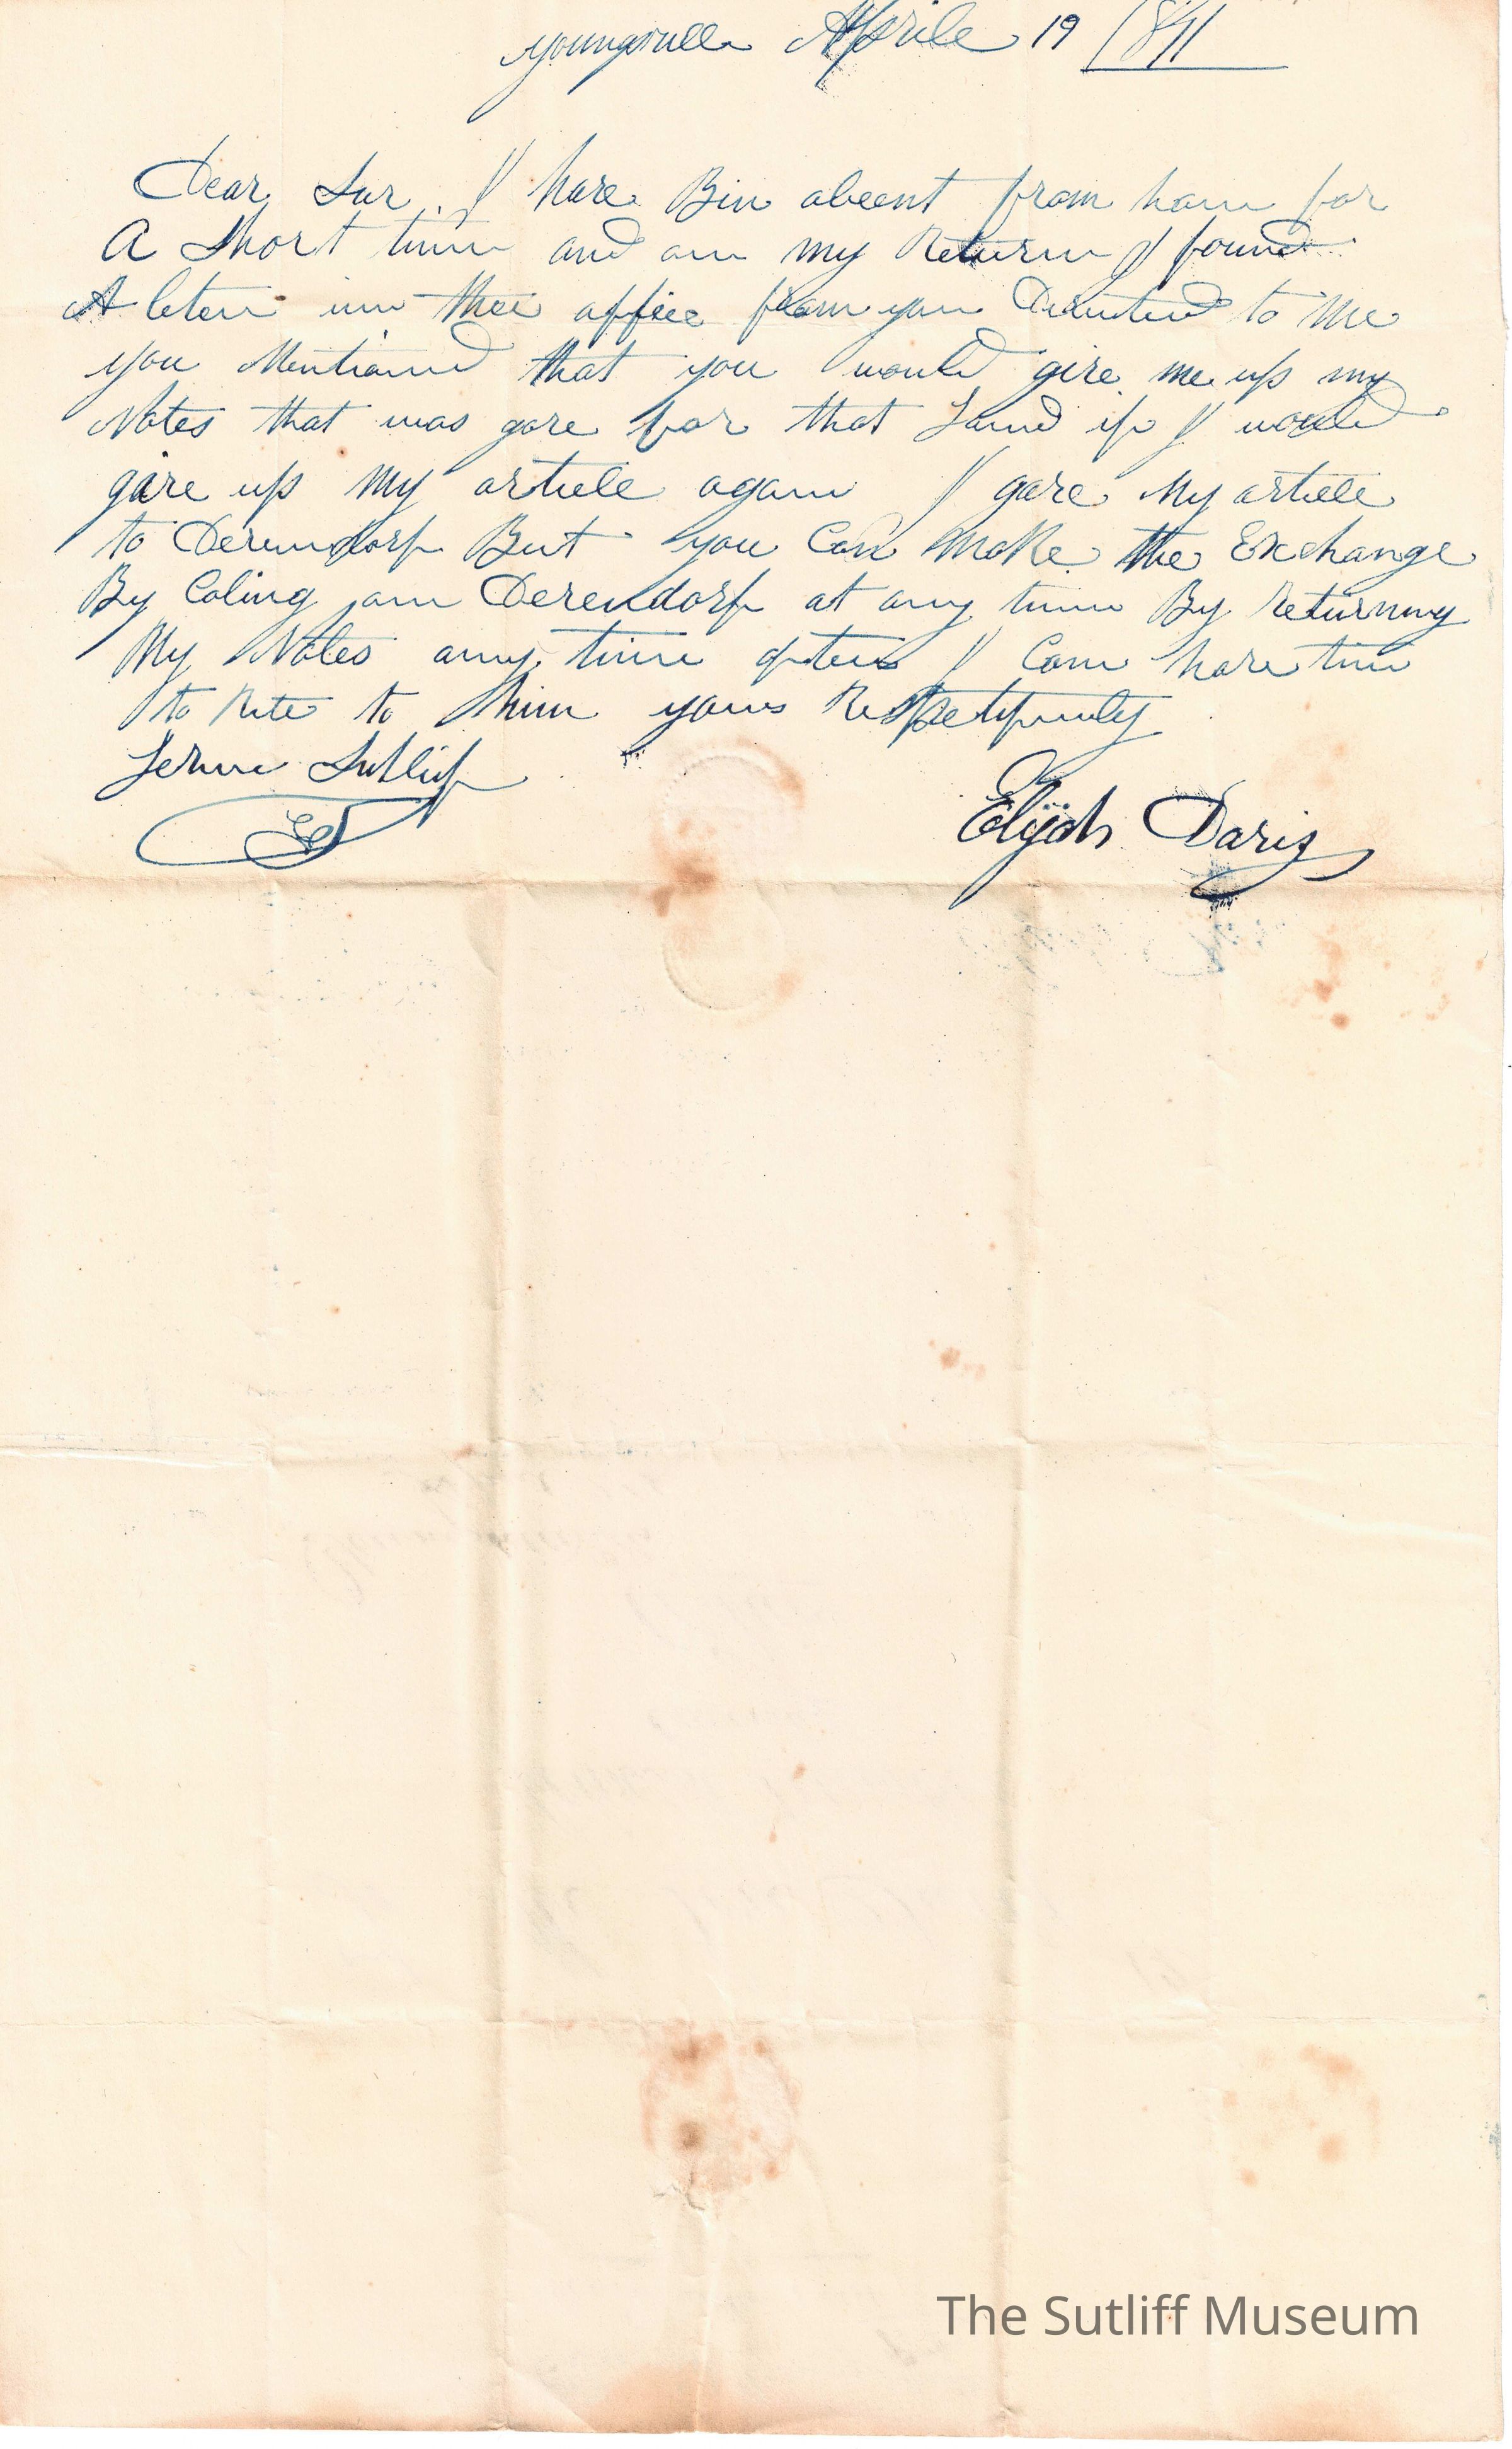 Youngsville Aprile 19 1841
Dear Sur. I have Bin absent from hom for
A Short time and on my Return I found
A leter inn thee office from you Directed to Me
you Mentioned that you would give me up my
Notes that was gave for that Land if I would
give up my article again I gave My article
to Devendorf But you Can Make the Exchange
By Caling on Devendorf at any time By returning
My Notes any time after I Can have time
to Rite to him yours Respectfully
Sutlif
Elijah Davis
The Sutliff Museum